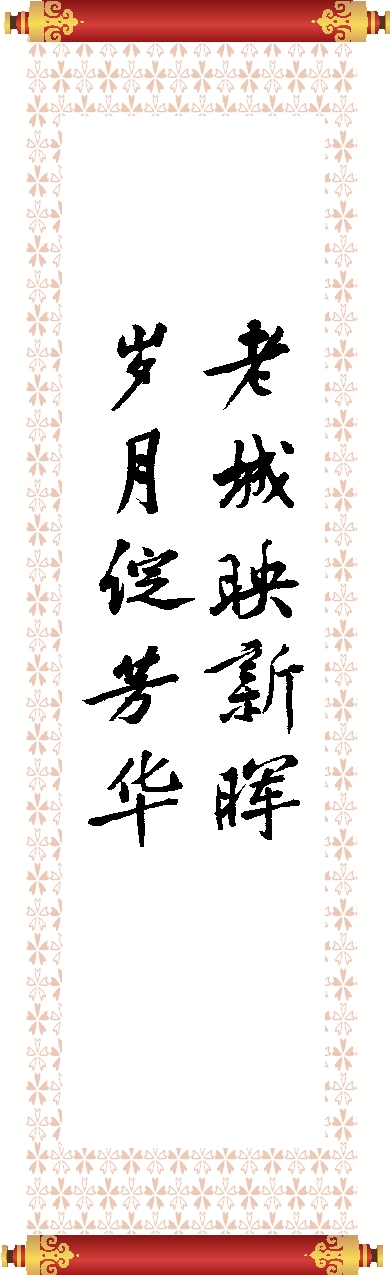 老城映新晖
岁月绽芳华